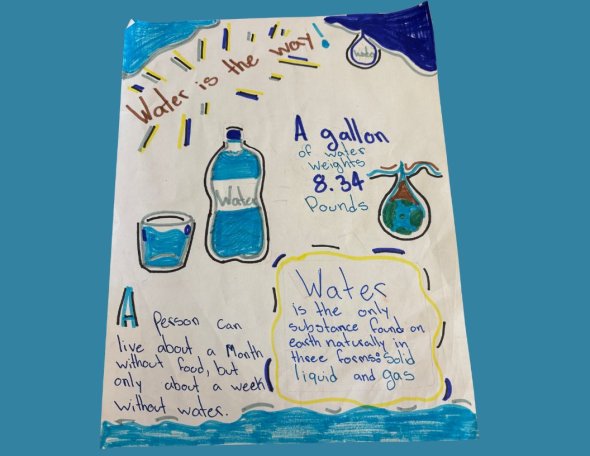 Water is the way!
water
A gallon
of water
weights
8.34
Pounds
Water
Water
is the only
substance found on
earth naturally in
three forms: Solid
liquid and gas
A Person can
live about a Month
without food, but
only about a week
without water.